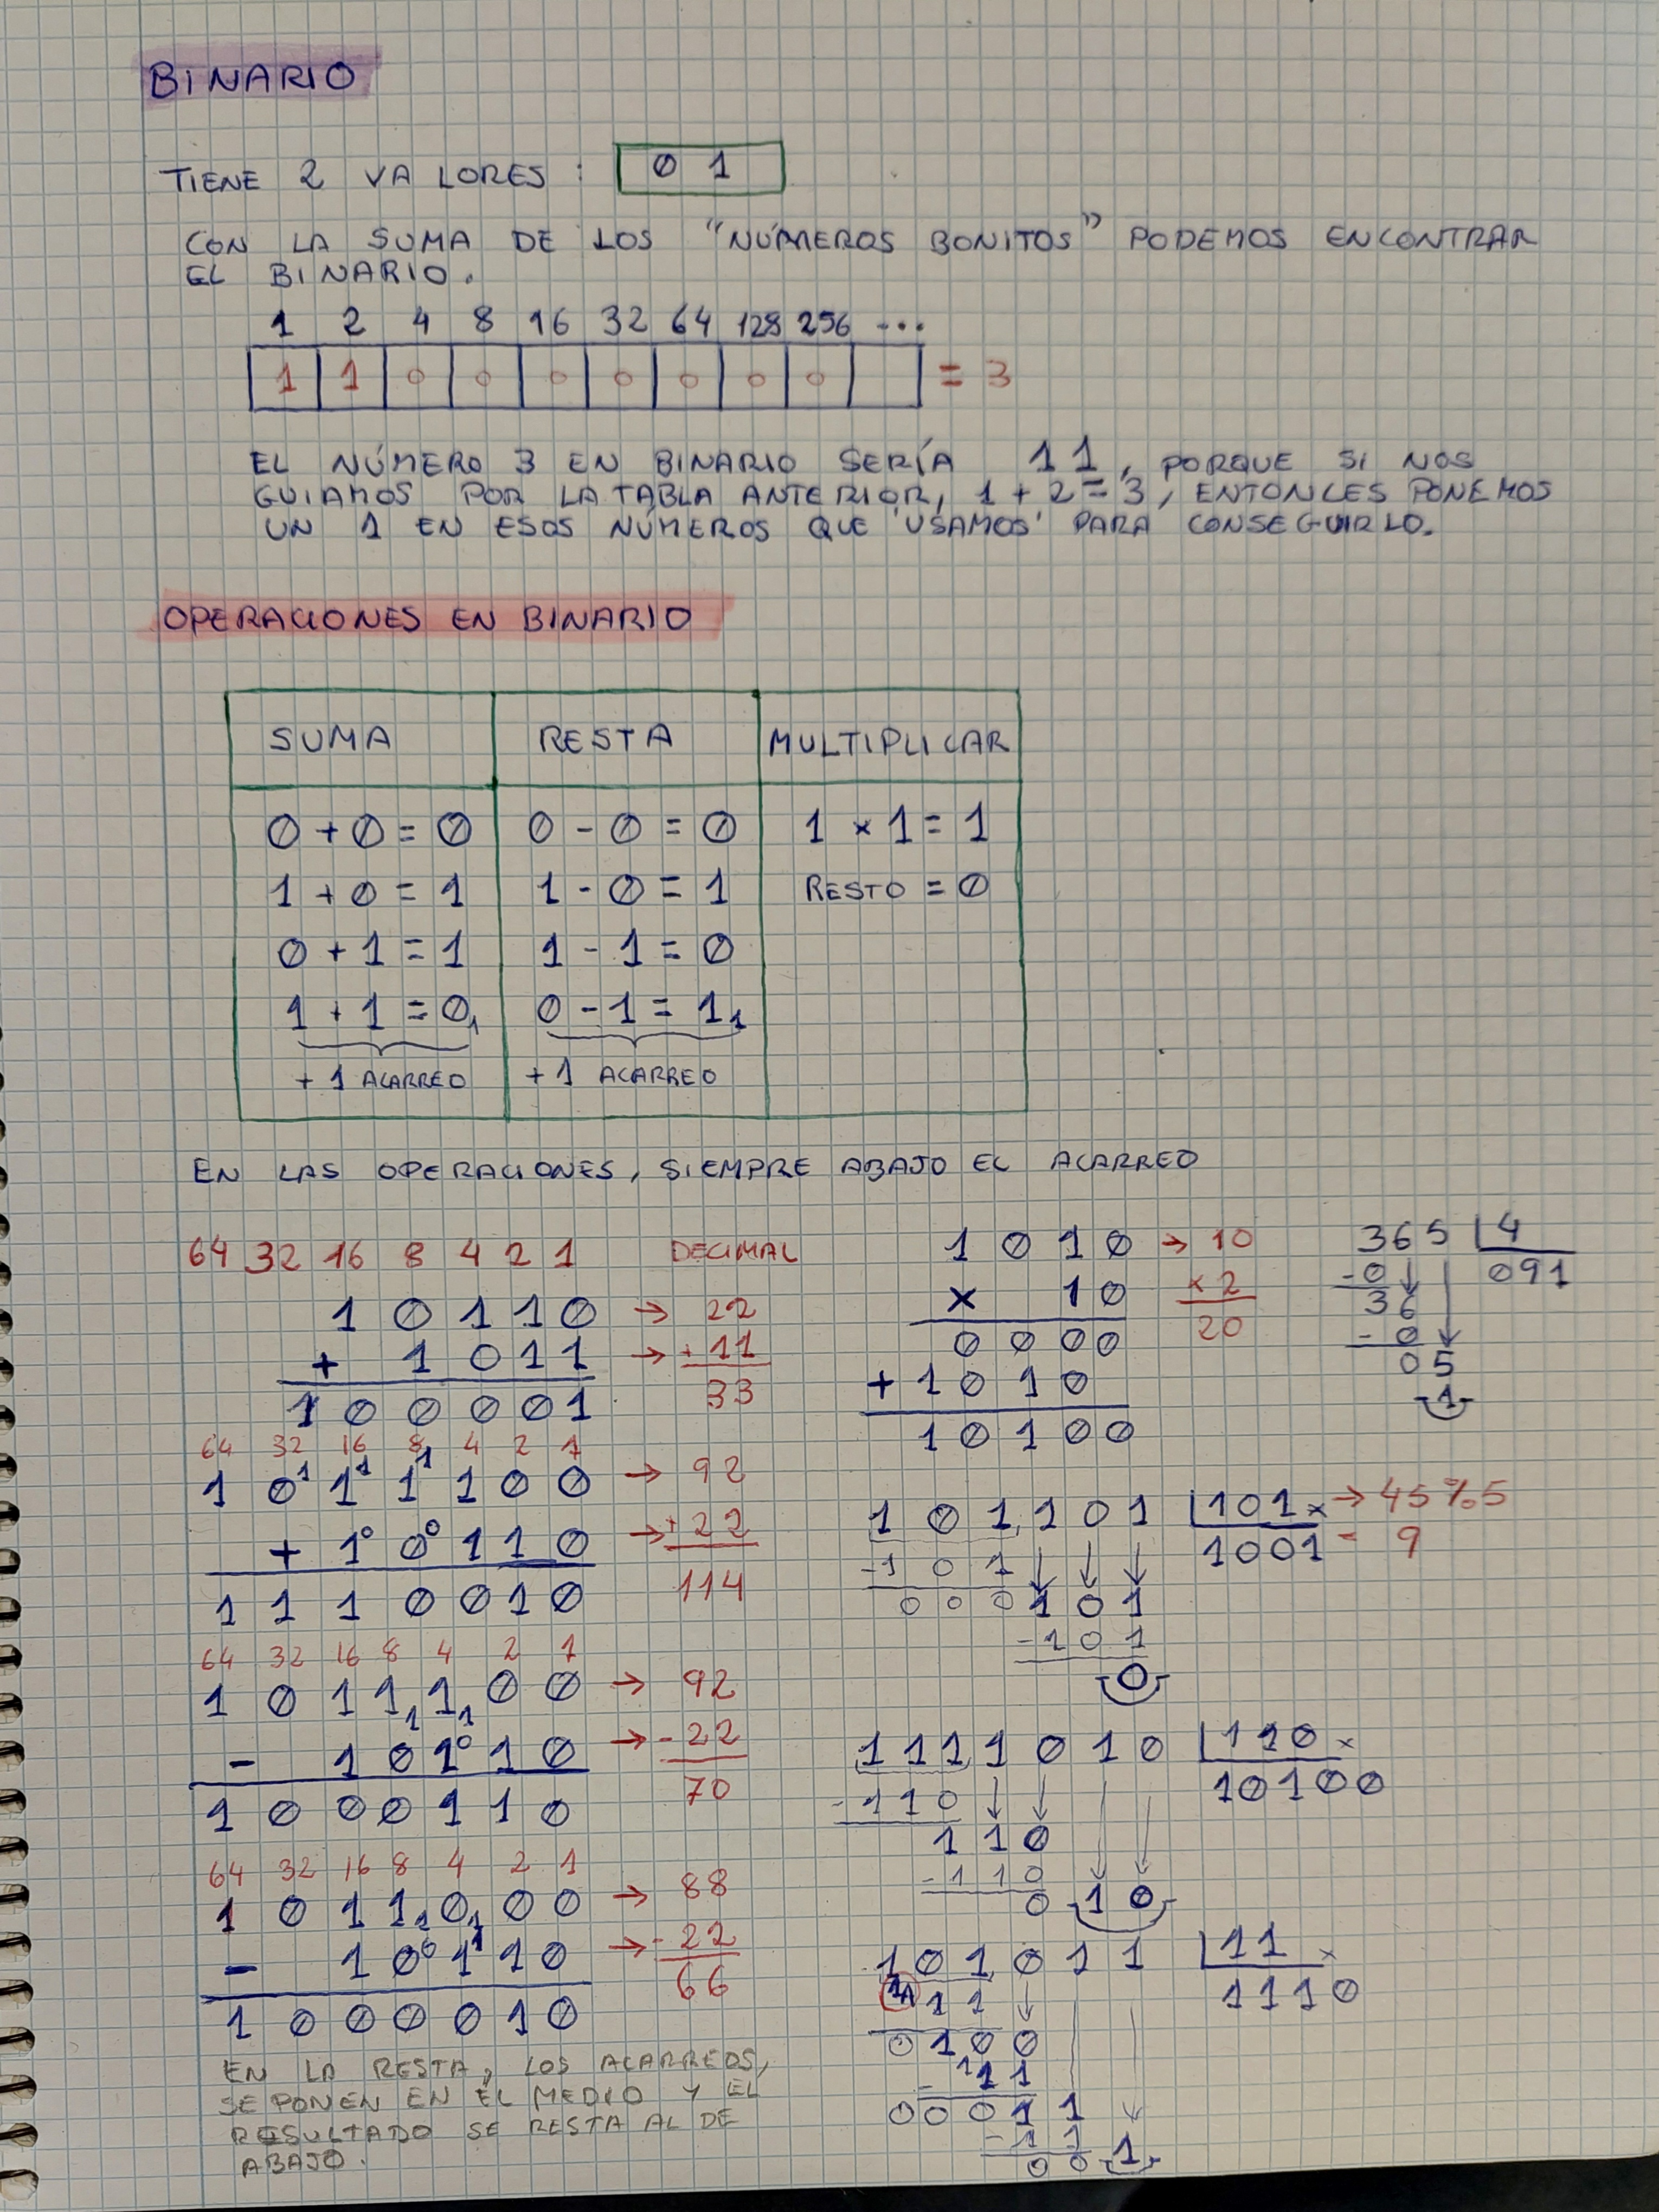 BINARIO
TIENE 2 VALORES: 0 1
CON LA SUMA DE LOS "NÚMEROS BONITOS" PODEMOS ENCONTRAR
EL BINARIO.
1 2 4 8 16 32 64 128 256 ...
1 1 0 0 0 0 0 0 0 = 3
EL NÚMERO 3 EN BINARIO SERÍA 11, PORQUE SI NOS
GUIAMOS POR LA TABLA ANTERIOR, 1 + 2 = 3, ENTONCES PONEMOS
UN 1 EN ESOS NÚMEROS QUE 'USAMOS' PARA CONSEGUIRLO.
OPERACIONES EN BINARIO
SUMA RESTA MULTIPLICAR
0 + 0 = 0 0 - 0 = 0 1 × 1 = 1
1 + 0 = 1 1 - 0 = 1 RESTO = 0
0 + 1 = 1 1 - 1 = 0
1 + 1 = 0,1 0 - 1 = 1,1
+ 1 ACARREO + 1 ACARREO
EN LAS OPERACIONES, SIEMPRE ABAJO EL ACARREO
64 32 16 8 4 2 1 DECIMAL
1 0 1 1 0 → 22
+ 1 0 1 1 → + 11
1 0 0 0 0 1 33
64 32 16 8 4 2 1
1 0 1 1 1 0 0 → 92
+ 1 0 1 1 0 → + 22
1 1 1 0 0 1 0 114
64 32 16 8 4 2 1
1 0 1 1 1 0 0 → 92
- 1 0 1 1 0 → - 22
1 0 0 0 1 1 0 70
64 32 16 8 4 2 1
1 0 1 1 0 0 0 → 88
- 1 0 1 1 0 → - 22
1 0 0 0 0 1 0 66
EN LA RESTA, LOS ACARREOS,
SE PONEN EN EL MEDIO Y EL
RESULTADO SE RESTA AL DE
ABAJO.
1 0 1 0 → 10
× 1 0 × 2
0 0 0 0 20
+ 1 0 1 0
1 0 1 0 0
365 4
- 0 091
36
- 0
05
1
1 0 1 1 0 1 101 × → 45 % 5
- 1 0 1 1001 = 9
0 0 0 1 0 1
- 1 0 1
0
1 1 1 1 0 1 0 110 ×
- 1 1 0 10100
1 1 0
- 1 1 0
0 1 0
1 0 1 0 1 1 11 ×
1 1 1 1 1 0
0 1 0 0
- 1 1
0 0 0 1 1
- 1 1
0 0 1